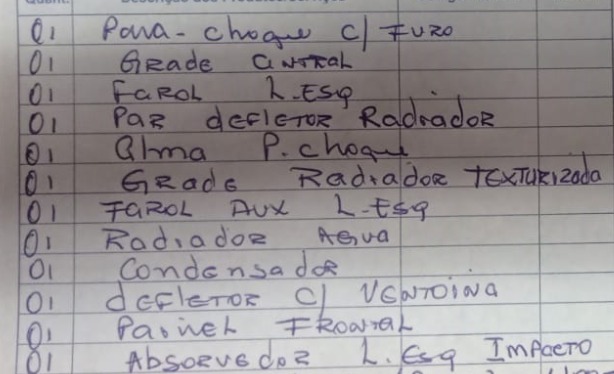 01 Para-choque c/ Furo
01 Grade central
01 Farol L.Esq
01 Par defletor Radiador
01 Alma P.choque
01 Grade Radiador texturizada
01 Farol Aux L-Esq
01 Radiador Agua
01 Condensador
01 defletor c/ Ventoina
01 Painel Frontal
01 Absorvedor L.Esq Impacto